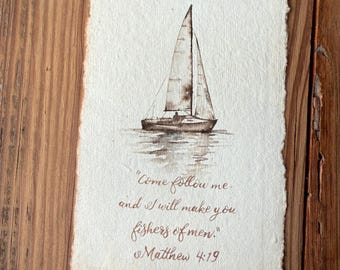 "Come follow me
and I will make you
fishers of men."
Matthew 4:19